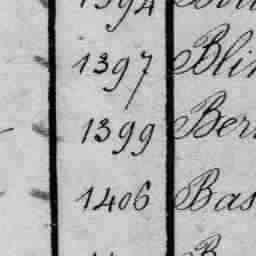 1394
1397 Bli
1399 Ber
1406 Bas